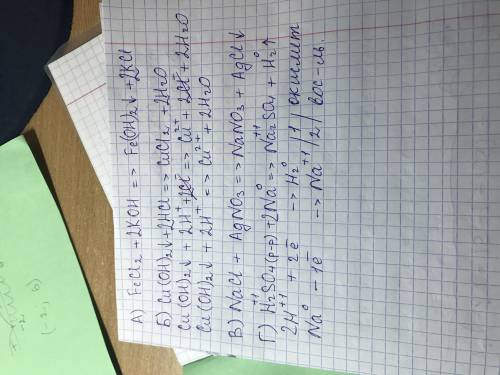 А) FeCl2 + 2KOH => Fe(OH)2↓ + 2KCl
Б) Cu(OH)2↓ + 2HCl => CuCl2 + 2H2O
Cu(OH)2↓ + 2H⁺ + 2Cl⁻ => Cu²⁺ + 2Cl⁻ + 2H2O
Cu(OH)2↓ + 2H⁺ => Cu²⁺ + 2H2O
В) NaCl + AgNO3 => NaNO3 + AgCl↓
Г) H2⁺¹SO4(р-р) + 2Na⁰ => Na2⁺¹SO4 + H2⁰↑
2H⁺¹ + 2ē -> H2⁰ | 1 | окислит
Na⁰ - 1ē -> Na⁺¹ | 2 | вос-ль.
(-2; 6)